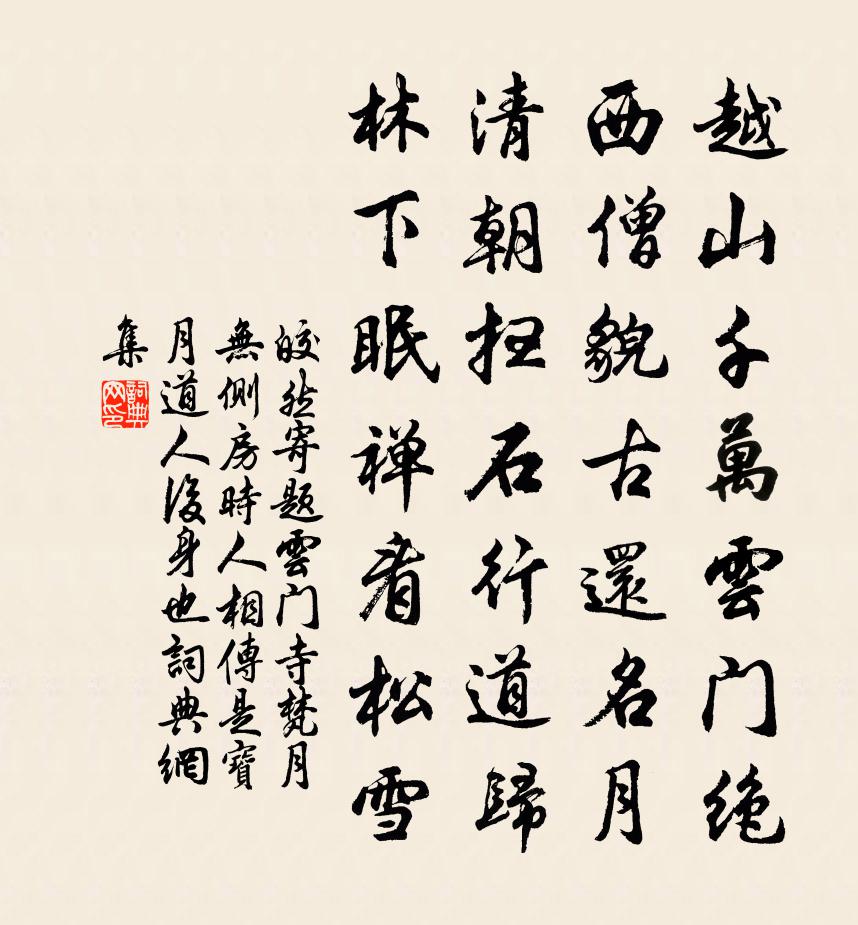 越山千萬雲门绝
西僧貌古還名月
清朝扫石行道歸
林下眠禅看松雪
皎然寄題雲门寺梵月
無側房時人相傳是寶
月道人後身也詞典網
集
詞典网印